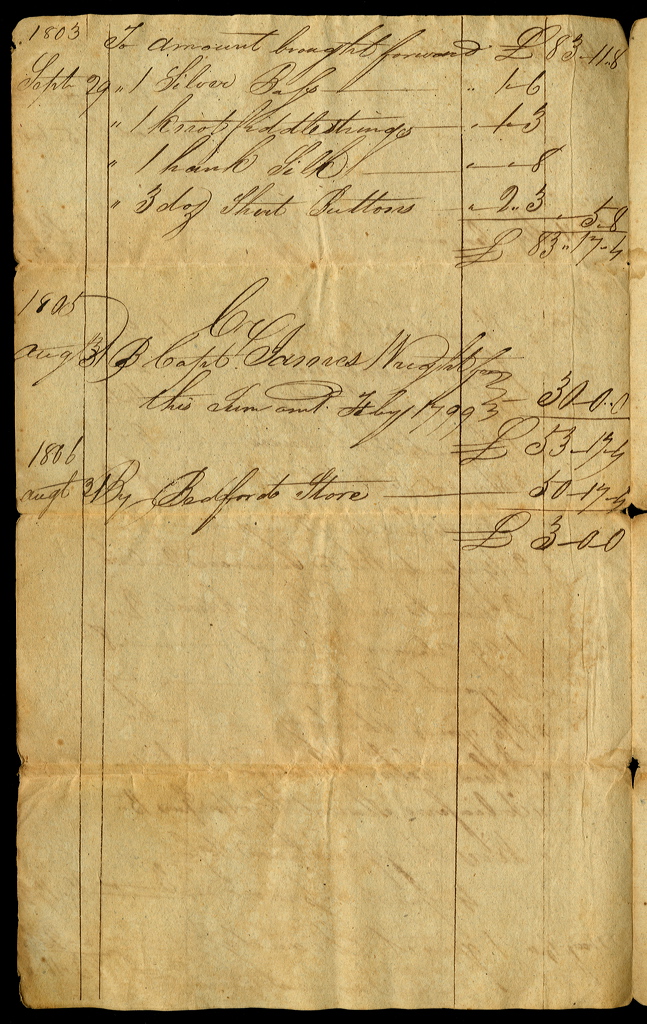 1803 To amount brought forward £ 83-11-8
Sept 29 " 1 Silver " 1-6
" 1 knot fiddlestrings " 1-3
" 1 hank Silk " - " - 8
" 3 doz Shirt Buttons " 2 " 3 " 5 " 8
£ 83 " 17 - 4
1805 Cr
augt 31 By Capt. James Wright for
this Sum amt. Feby 1799 30-0-0
£ 53-17-4
1806
augt 31 By Bedford Store 50-17-4
£ 3-0-0